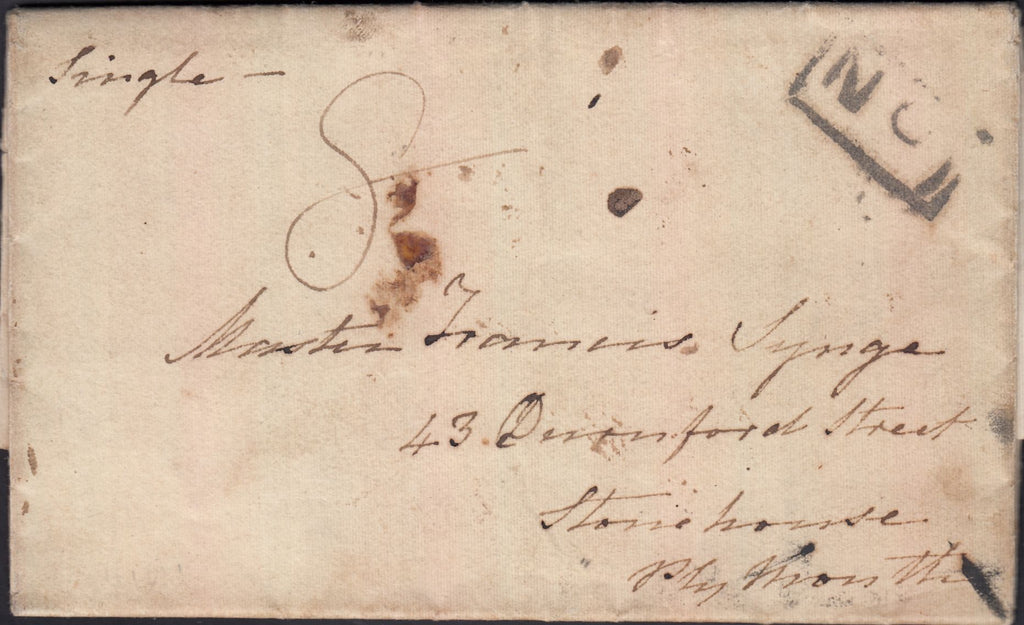 Single —
8
NO 1
Master Francis Synge
43 Durnford Street
Stonehouse
Plymouth